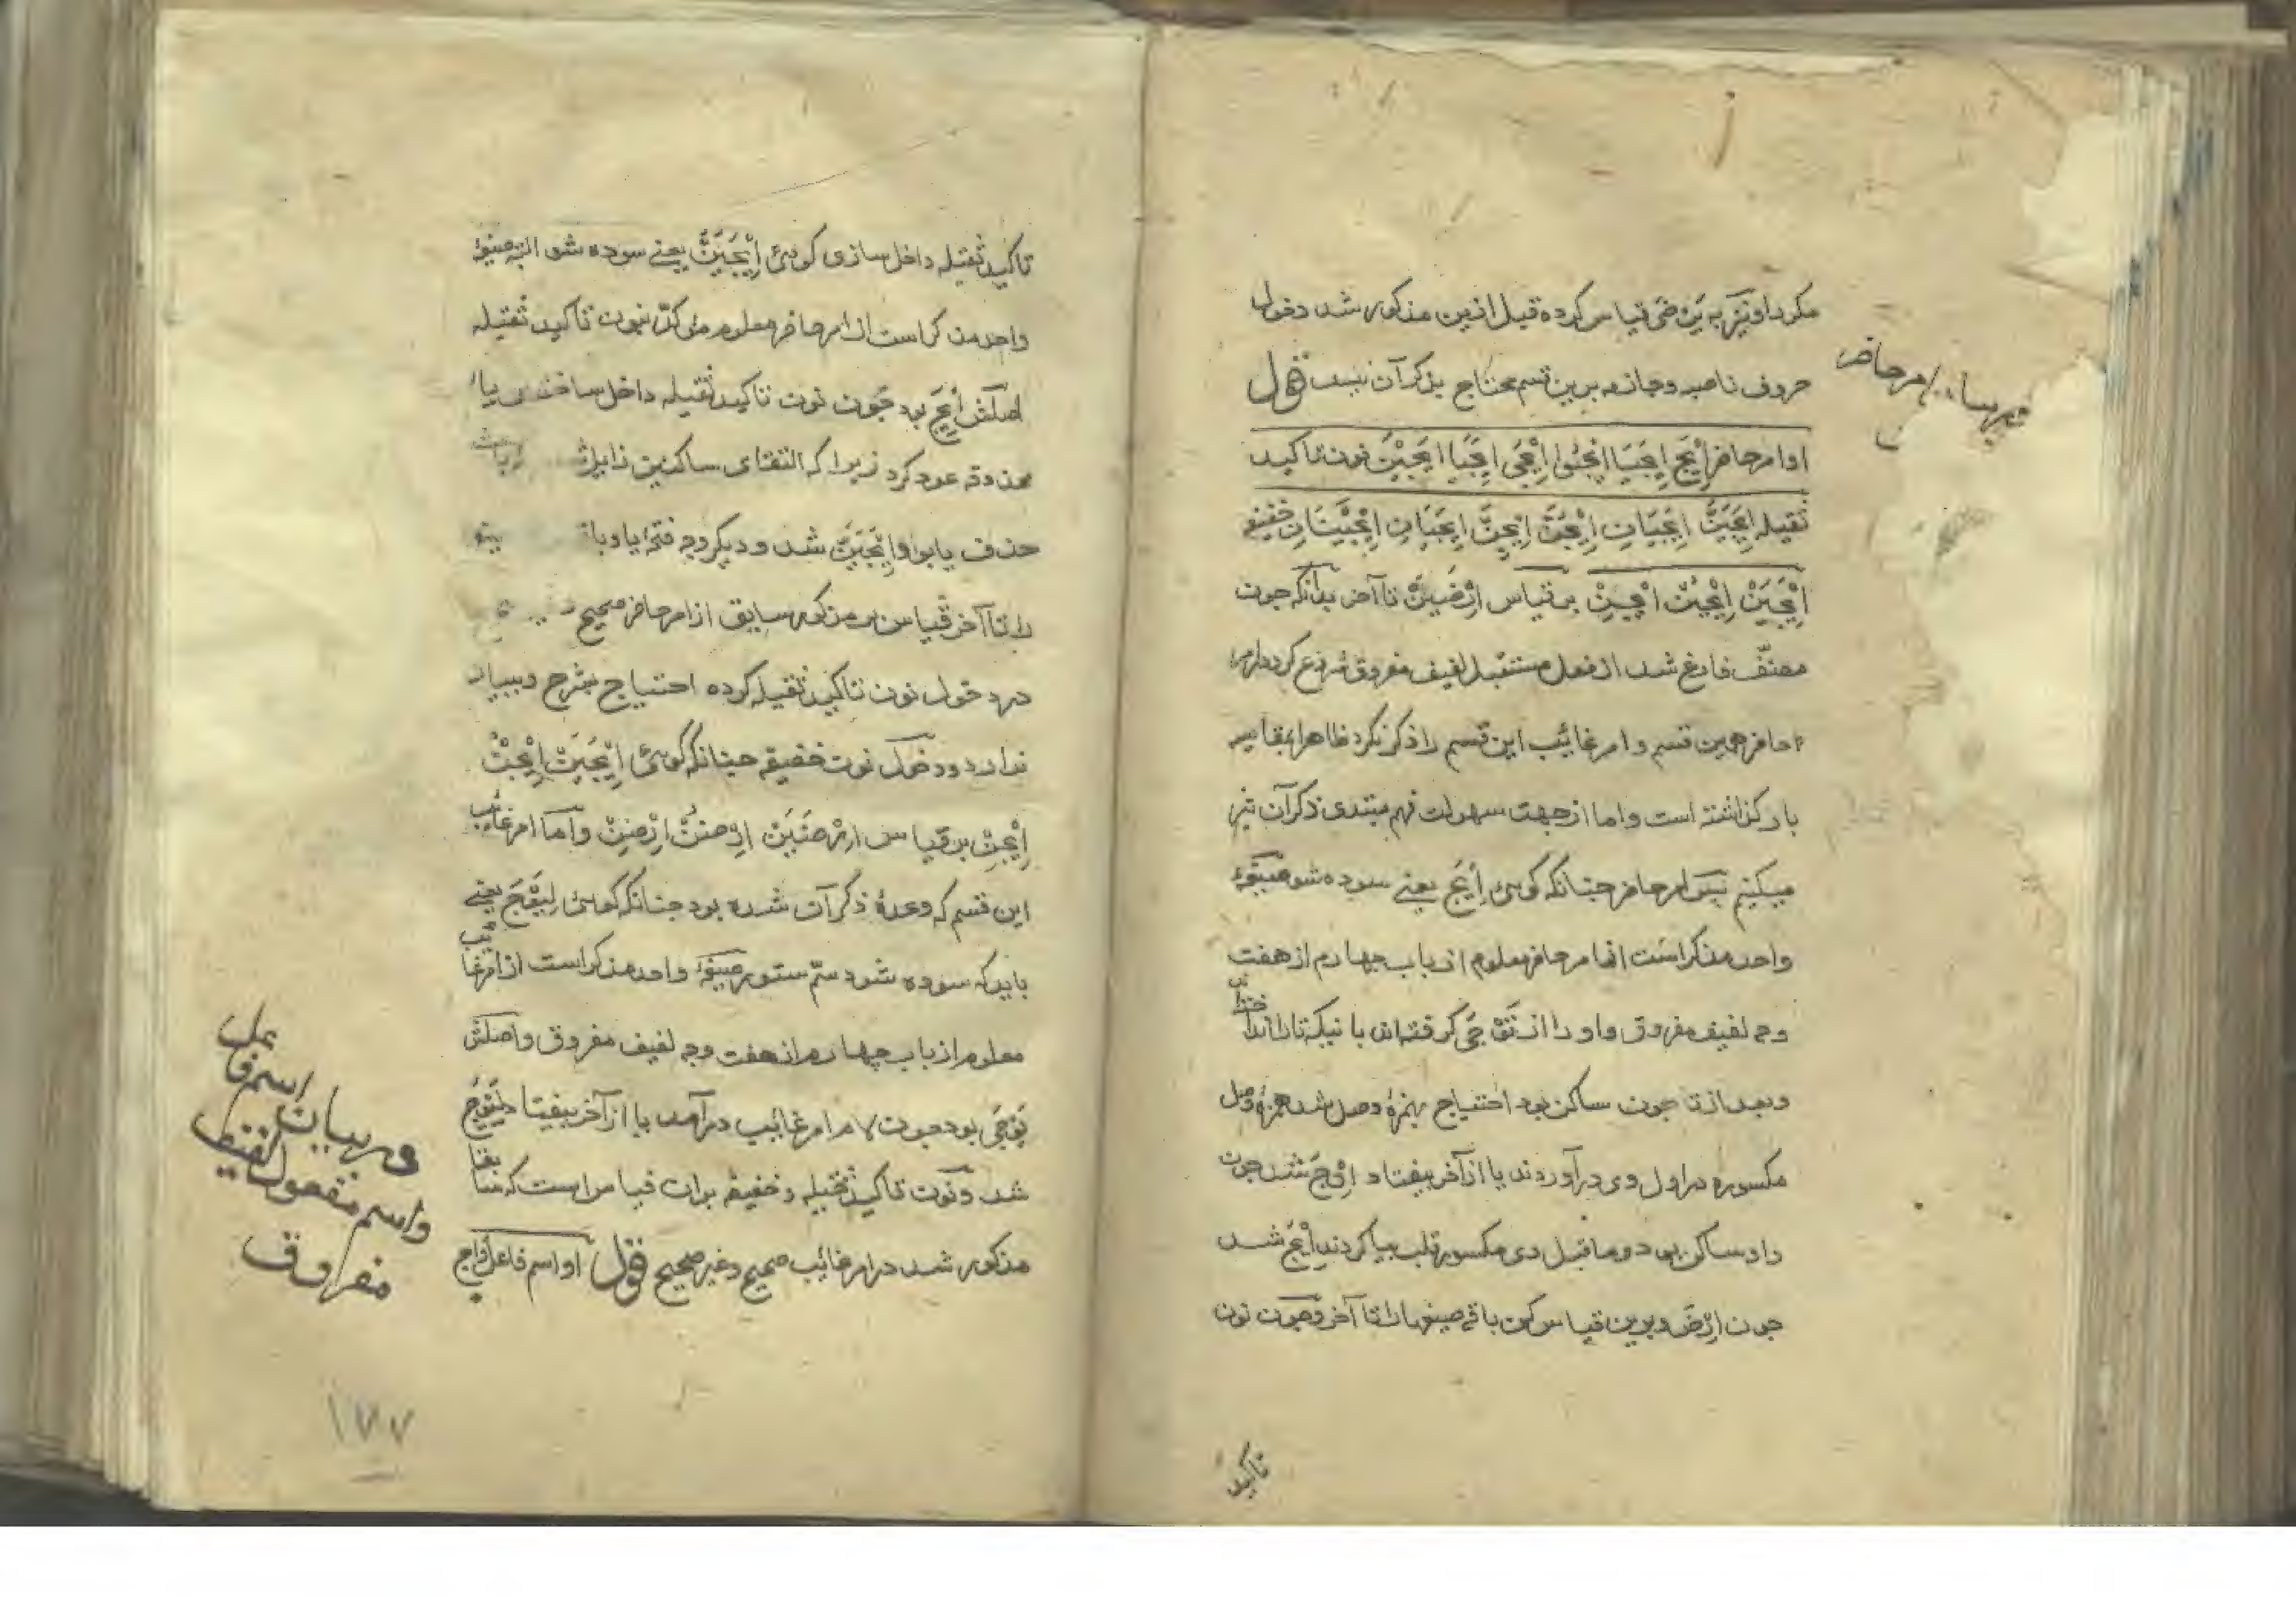 مکرد او نیز به یرضی قیاس کرده قبل ازین مذکور شد دخول
حروف ناصبه و جازمه برین قسم محتاج بذکر آن نیست قول
او امر حاضر اِیْجَ اِیْجَیَا اِیْجَوْا اِیْجَیْ اِیْجَیَا اِیْجَیْنَ نون تاکید
ثقیله اِیْجَیَنَّ اِیْجَیَانِّ اِیْجَوُنَّ اِیْجَیِنَّ اِیْجَیَانِّ اِیْجَیْنَانِّ خفیفه
اِیْجَیَنْ اِیْجَوُنْ اِیْجَیِنْ بر قیاس اِرْضَیَنَّ تا آخر بدانکه چون
مصنّف فارغ شد از فعل مستقبل لفیف مفروق شروع کرد در امر
حاضر همین قسم و امر غائب این قسم را ذکر نکرد ظاهرا بمقایسه
بار گذاشته است و اما از جهت سهولت فهم مبتدی ذکر آن نیز
میکنیم پس امر حاضر چنانکه گوئی اِیْجَ یعنے سوده شو صیغهٔ
واحد مذکر است از امر حاضر معلوم از باب چهارم از هفت
وجه لفیف مفروق و او را از تَوْجَیْ گرفته‌اند با نیکه تا را انداختند
و بعد از تا چون ساکن بود احتیاج بهمزهٔ وصل شد همزهٔ وصل
مکسوره در اول وی درآوردند یا از آخر بیفتاد اِوْجَ شد چون
واو ساکن بود و ماقبل وی مکسور قلب بیا کردند اِیْجَ شد
چون اِرْضَ و برین قیاس کن باقی صیغها را تا آخر و چون نون
تاکید
در بیان امر حاضر
تاکید ثقیله داخل سازی گوئی اِیْجَیَنَّ یعنے سوده شو البته صیغهٔ
واحد مذکر است از امر حاضر معلوم مؤکّد بنون تاکید ثقیله
اصلش اِیْجَ بود چون نون تاکید ثقیله داخل ساختند یا
محذوفه عود کرد زیرا که التقای ساکنین زایل
حذف یا بود اِیْجَیَنَّ شد و دیگر وجه فتحهٔ یا
را تا آخر قیاس بر مذکور سابق از امر حاضر صحیح
در دخول نون تاکید ثقیله کرده احتیاج بشرح و بیان
ندارد و دخول نون خفیفه چنانکه گوئی اِیْجَیَنْ اِیْجَوُنْ
اِیْجَیِنْ بر قیاس اِرْضَیَنْ اِرْضَوُنْ اِرْضَیِنْ و اما امر غائب
این قسم که وعدهٔ ذکر آن شده بود چنانکه گوئی لِیَوْجَ یعنے
باید که سوده شود سمّ ستور صیغهٔ واحد مذکر است از امر غائب
معلوم از باب چهارم از هفت وجه لفیف مفروق و اصلش
یَوْجَیْ بود چون لام امر غائب درآمد یا از آخر بیفتاد لِیَوْجَ
شد و نون تاکید ثقیله و خفیفه بران قیاس است که سابقا
مذکور شد در امر غائب صحیح و غیر صحیح قول او اسم فاعل وَاجٍ
عل
در بیان اسم فا
واسم مفعول لفیف
مفروق
۱۷۷